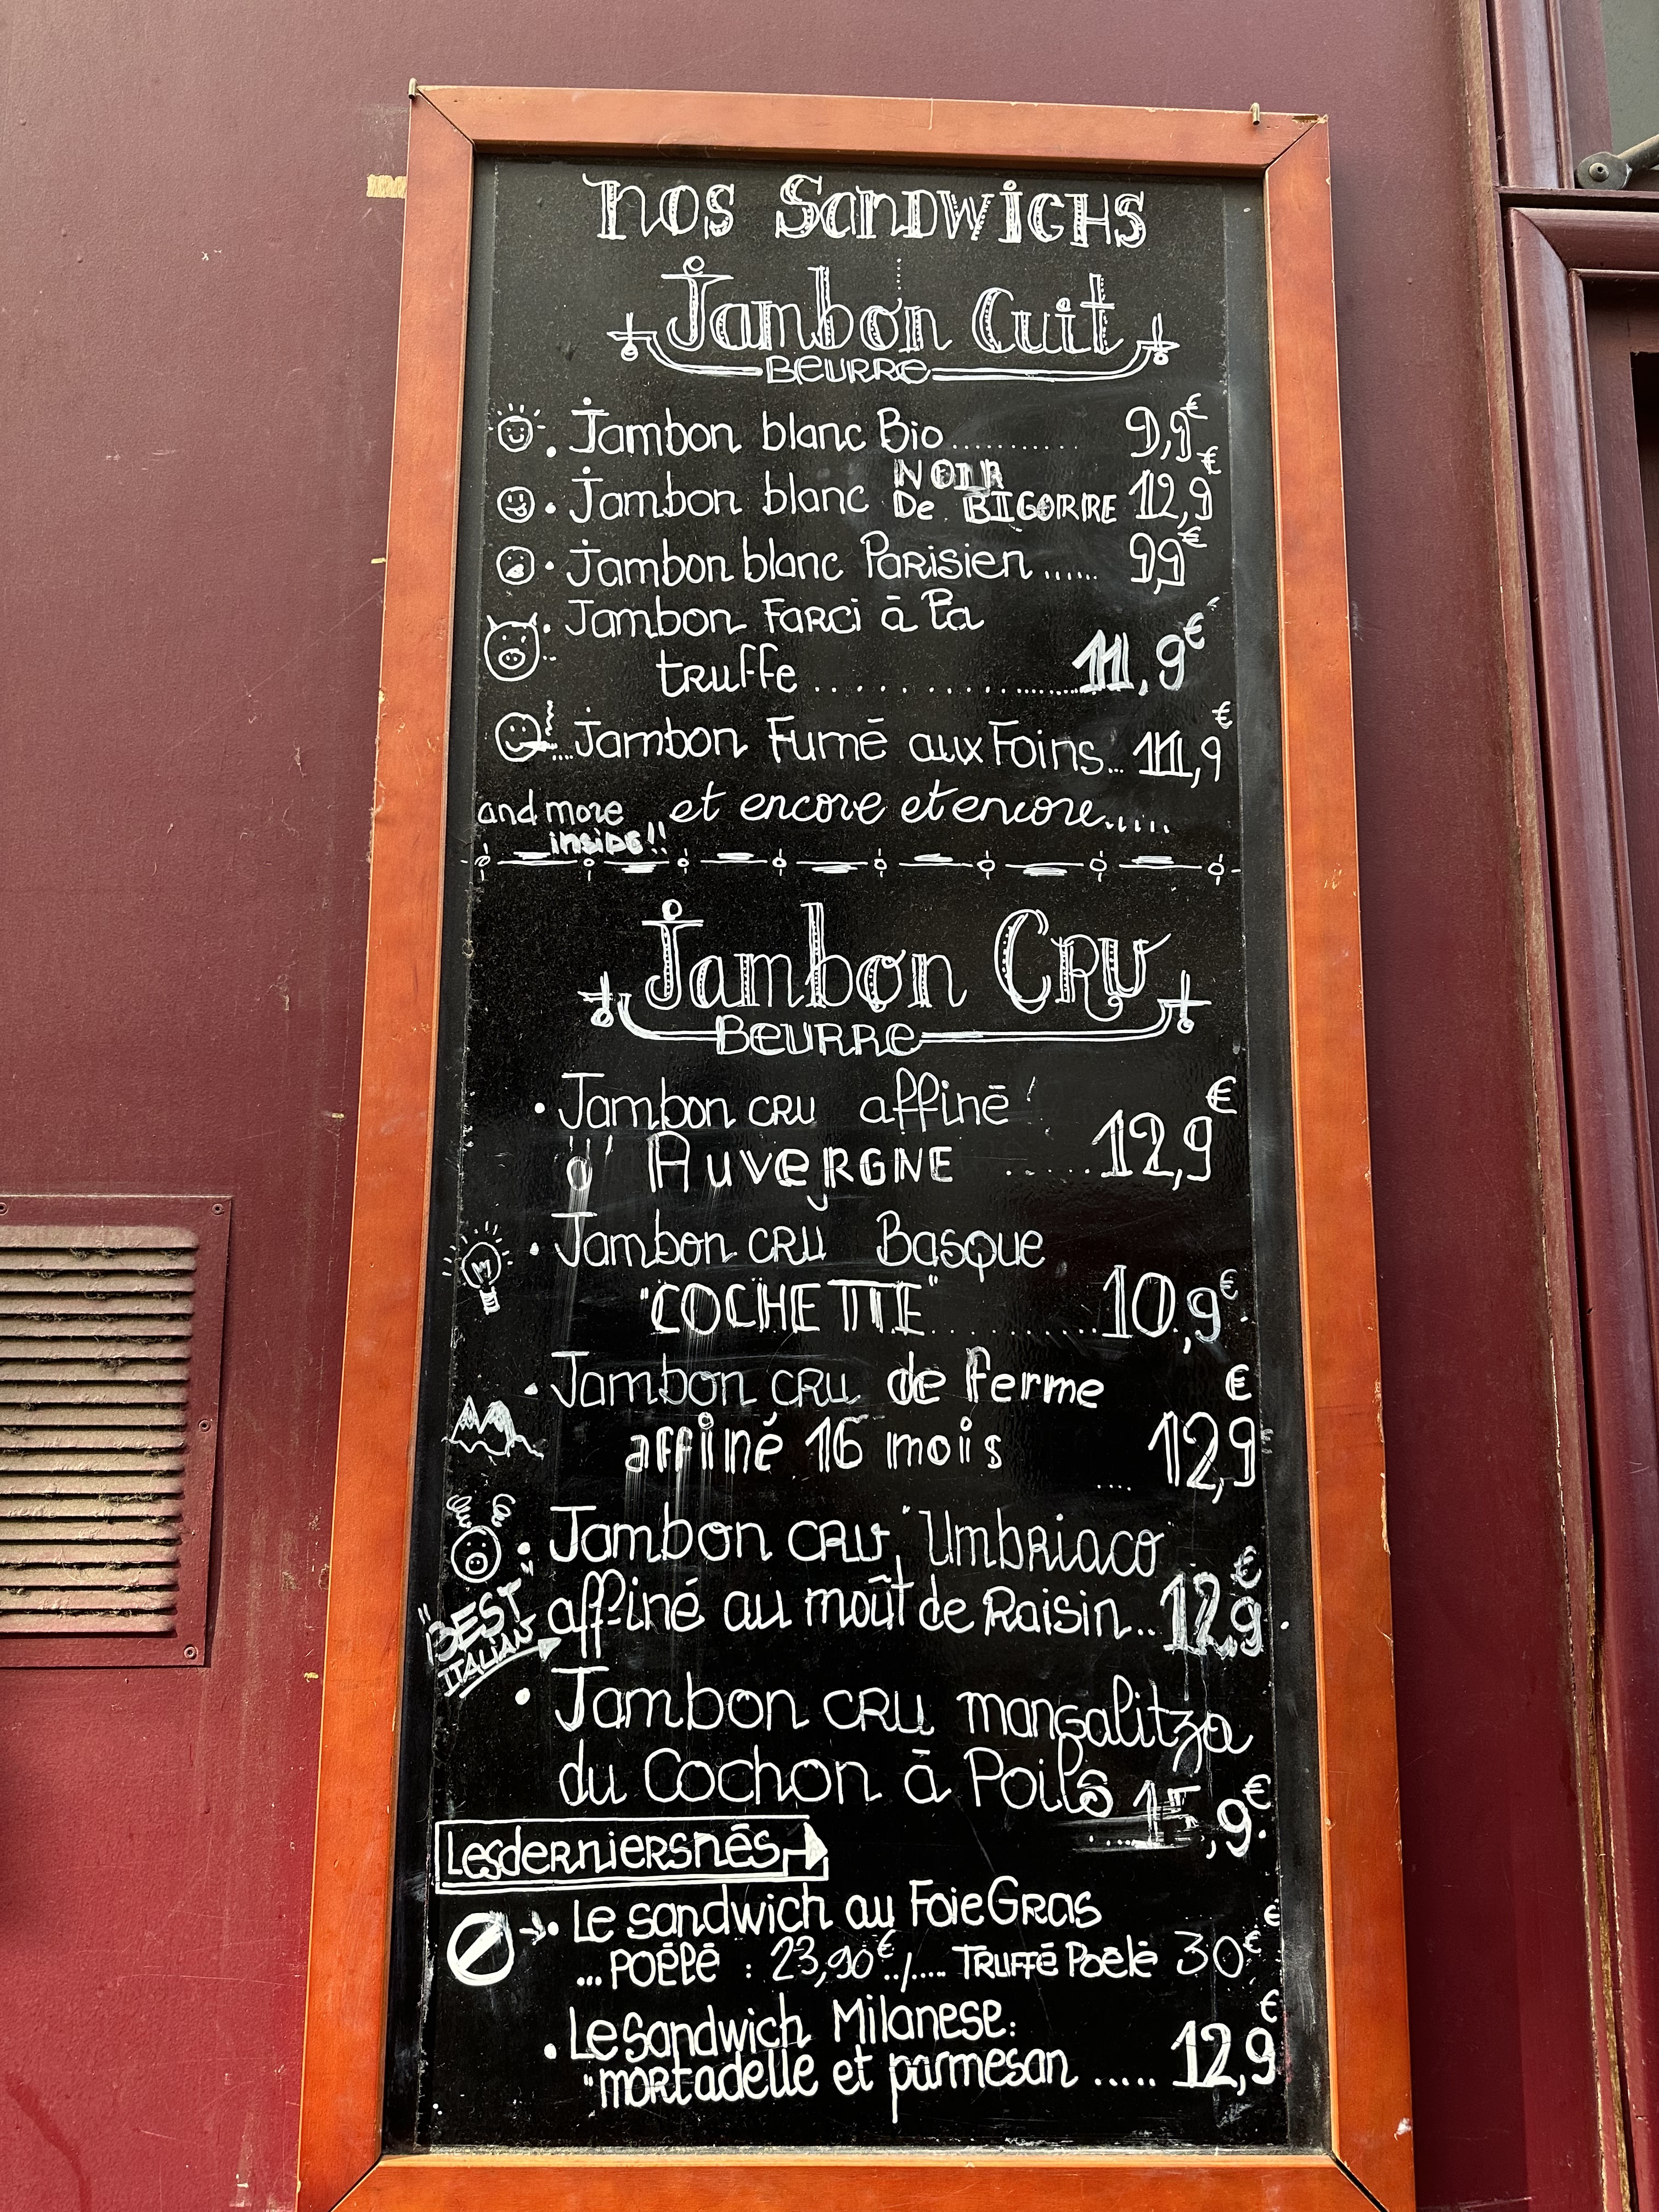 Nos Sandwichs
Jambon Cuit
Beurre
Jambon blanc Bio........... 9,9€
Jambon blanc NOIR De BIGORRE 12,9€
Jambon blanc Parisien ...... 9,9€
Jambon Farci à la
truffe ................... 11,9€
Jambon Fumé aux Foins... 11,9€
and more et encore et encore.....
inside!!
Jambon Cru
Beurre
Jambon cru affiné
Auvergne ...... 12,9€
Jambon cru Basque
"COCHETTE" ........... 10,9€
Jambon cru de ferme €
affiné 16 mois .... 12,9
Jambon cru "Umbriaco"
affiné au moût de Raisin... 12,9€
"BEST
ITALIAN"
Jambon cru mangalitza
du Cochon à Poils .... 15,9€
Les derniers nés
Le sandwich au Foie Gras
... Poêlé : 23,90€../..... Truffé Poêlé 30€
Le Sandwich Milanese:
"mortadelle et parmesan ..... 12,9€